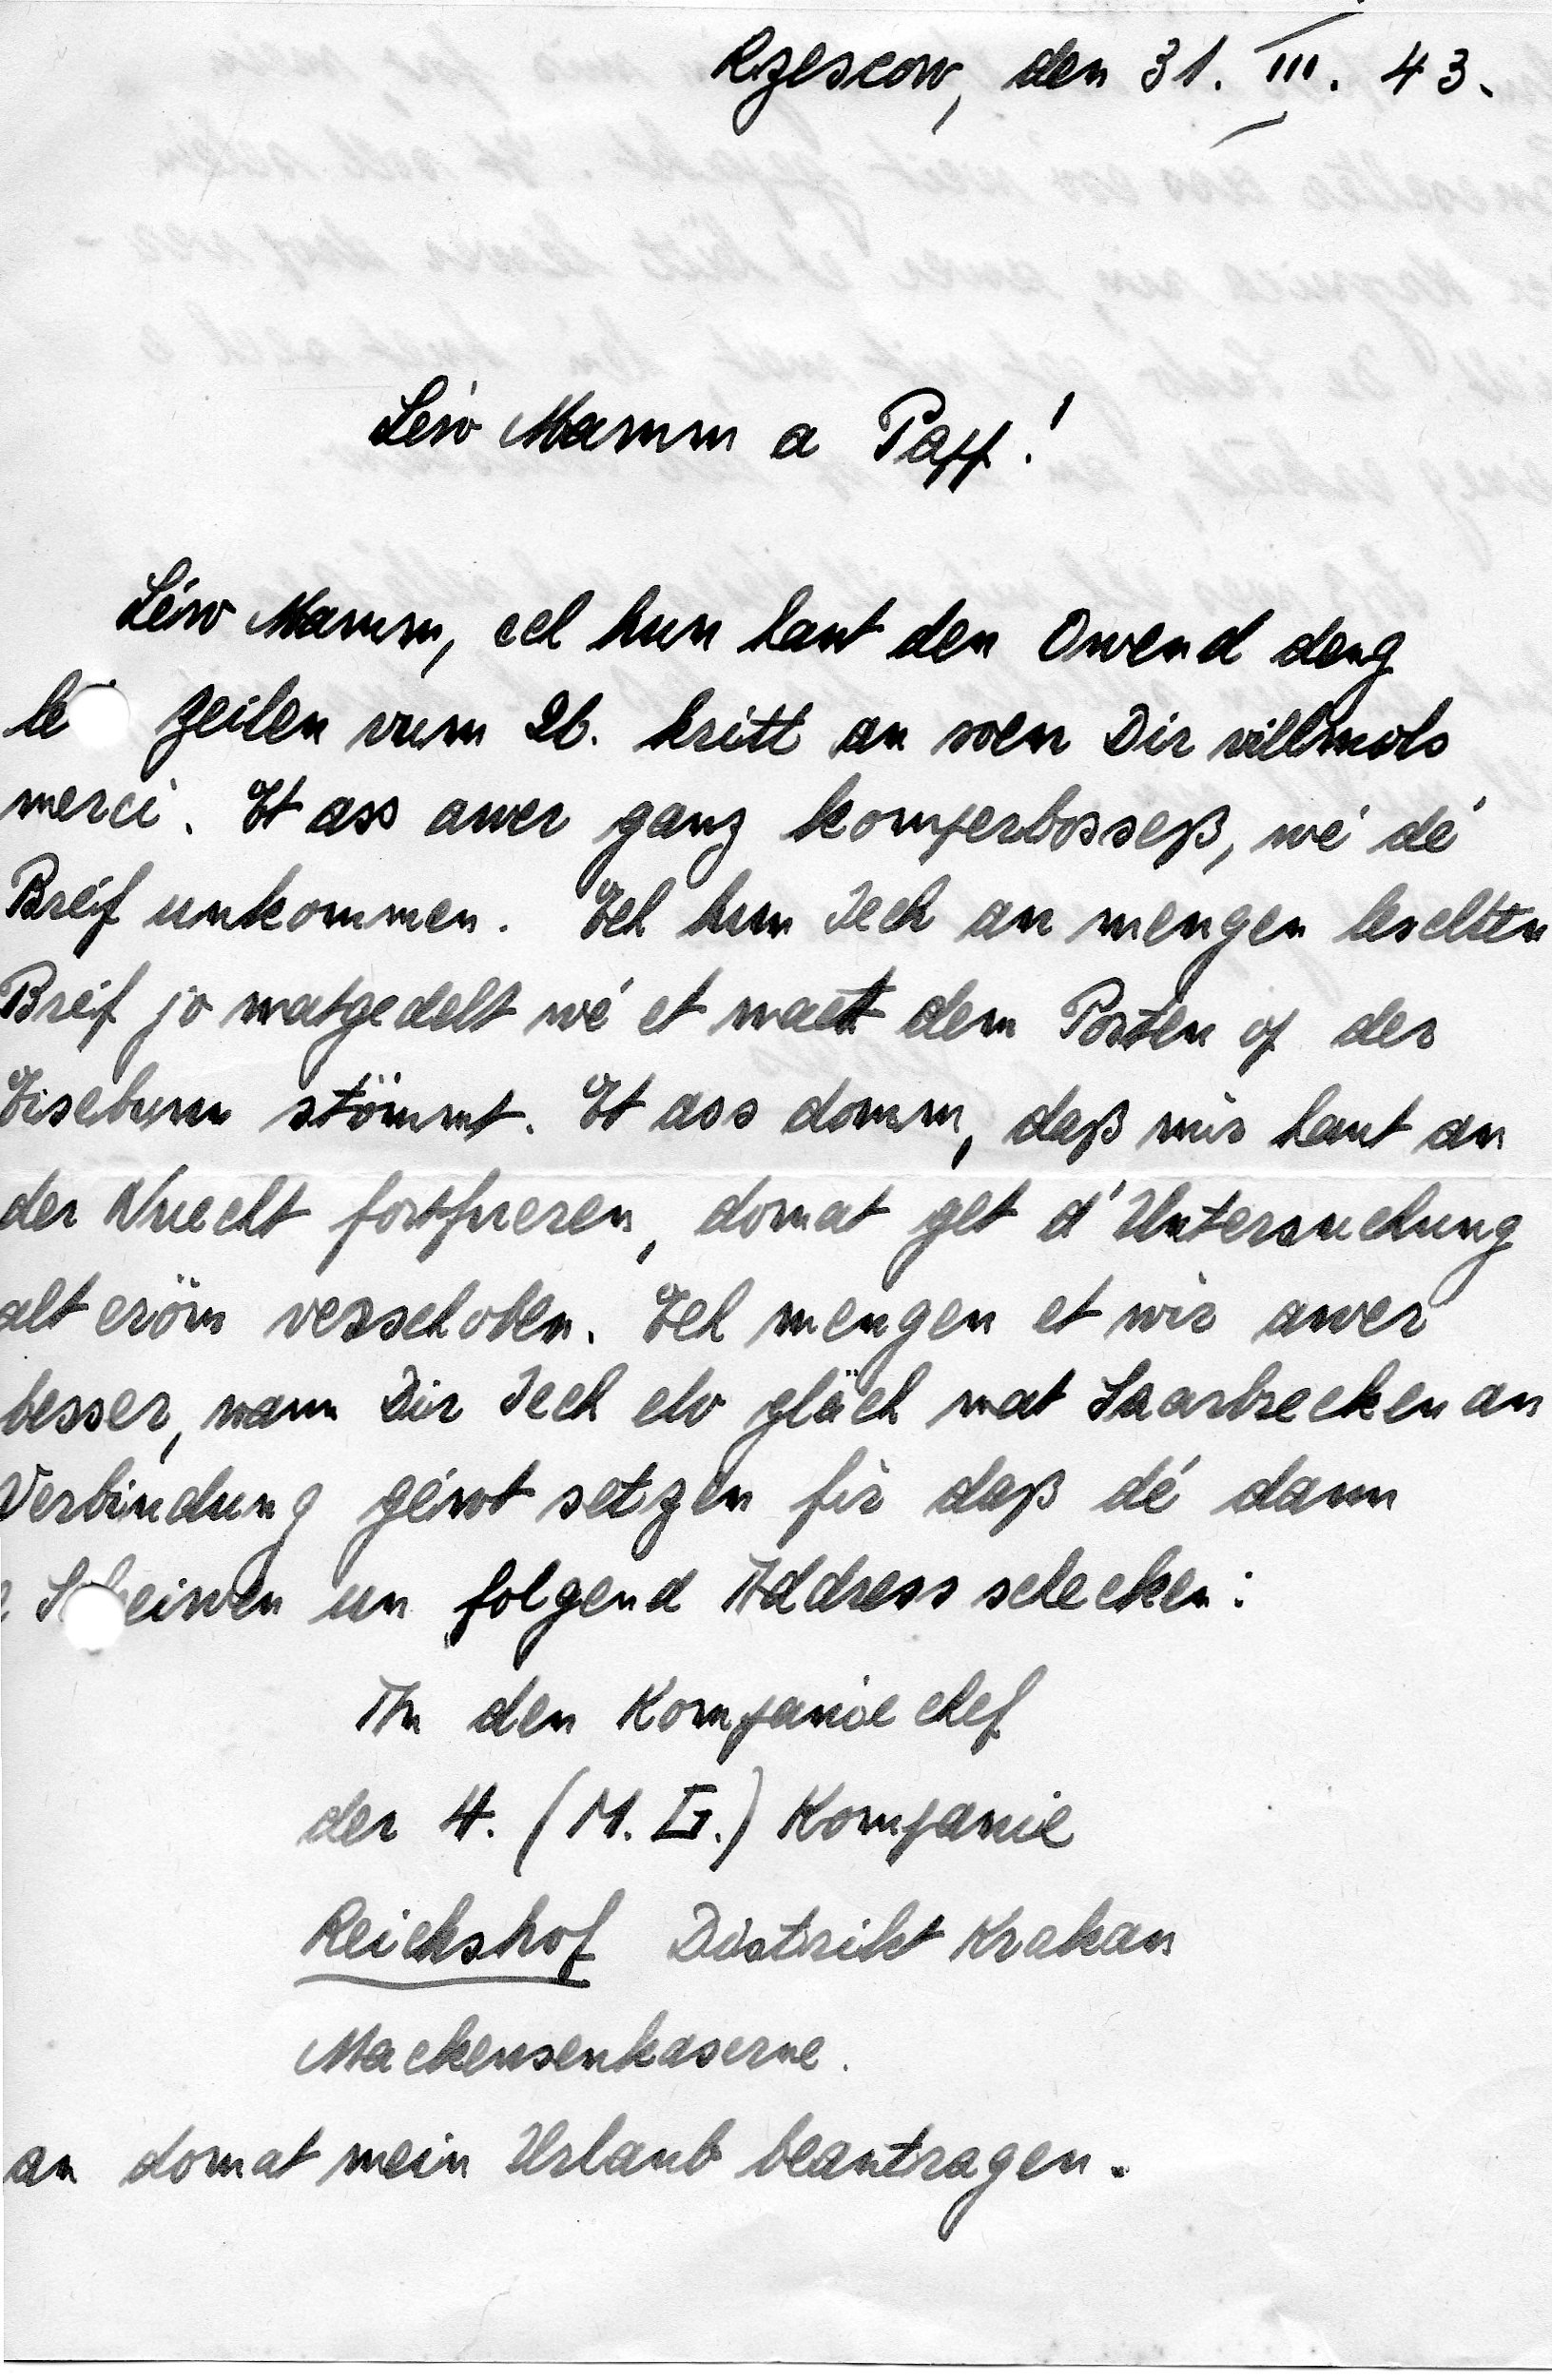 Rzescow, den 31. III. 43.
Léiw Mamm a Papp!
Léiw Mamm, ech hun haut den Owend deng
lé Zeilen vum 26. kritt an soen Dir villmols
merci. Et ass awer ganz komperbosseß, wé dé
Bréif unkommen. Ech hun Iech an mengen leschten
Bréif jo matgedelt wé et matt dem Posten op der
Eisebunn stömmt. Et ass domm, daß mir haut an
der Nuecht fortfueren, domat get d'Untersuchung
alt eröm verschoben. Ech mengen et wir awer
besser, wann Dir Iech elo gläch mat Saarbrecken an
Verbindung géiwt setzen fir daß dé dann
e Schreiwen un folgend Address schecken:
An den Kompanie chef
der 4. (M. G.) Kompanie
Reichshof Distrikt Krakau
Mackensenkaserne.
an domat mein Urlaub beantragen.